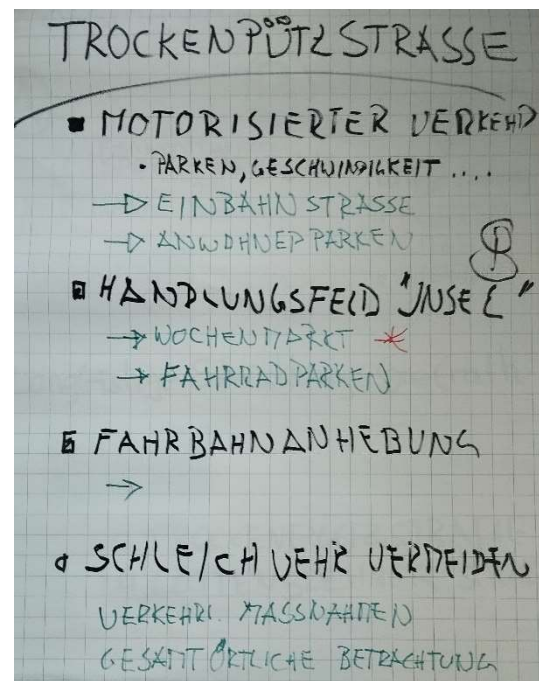 TROCKENPÜTZSTRASSE
▪ MOTORISIERTER VERKEHR
• PARKEN, GESCHWINDIGKEIT ....
→ EINBAHNSTRASSE
→ ANWOHNERPARKEN
B
▪ HANDLUNGSFELD "INSEL"
→ WOCHENMARKT *
→ FAHRRADPARKEN
▪ FAHRBAHNANHEBUNG
→
▪ SCHLEICHVEHR VERMEIDEN
VERKEHRL. MASSNAHMEN
GESAMTÖRTLICHE BETRACHTUNG